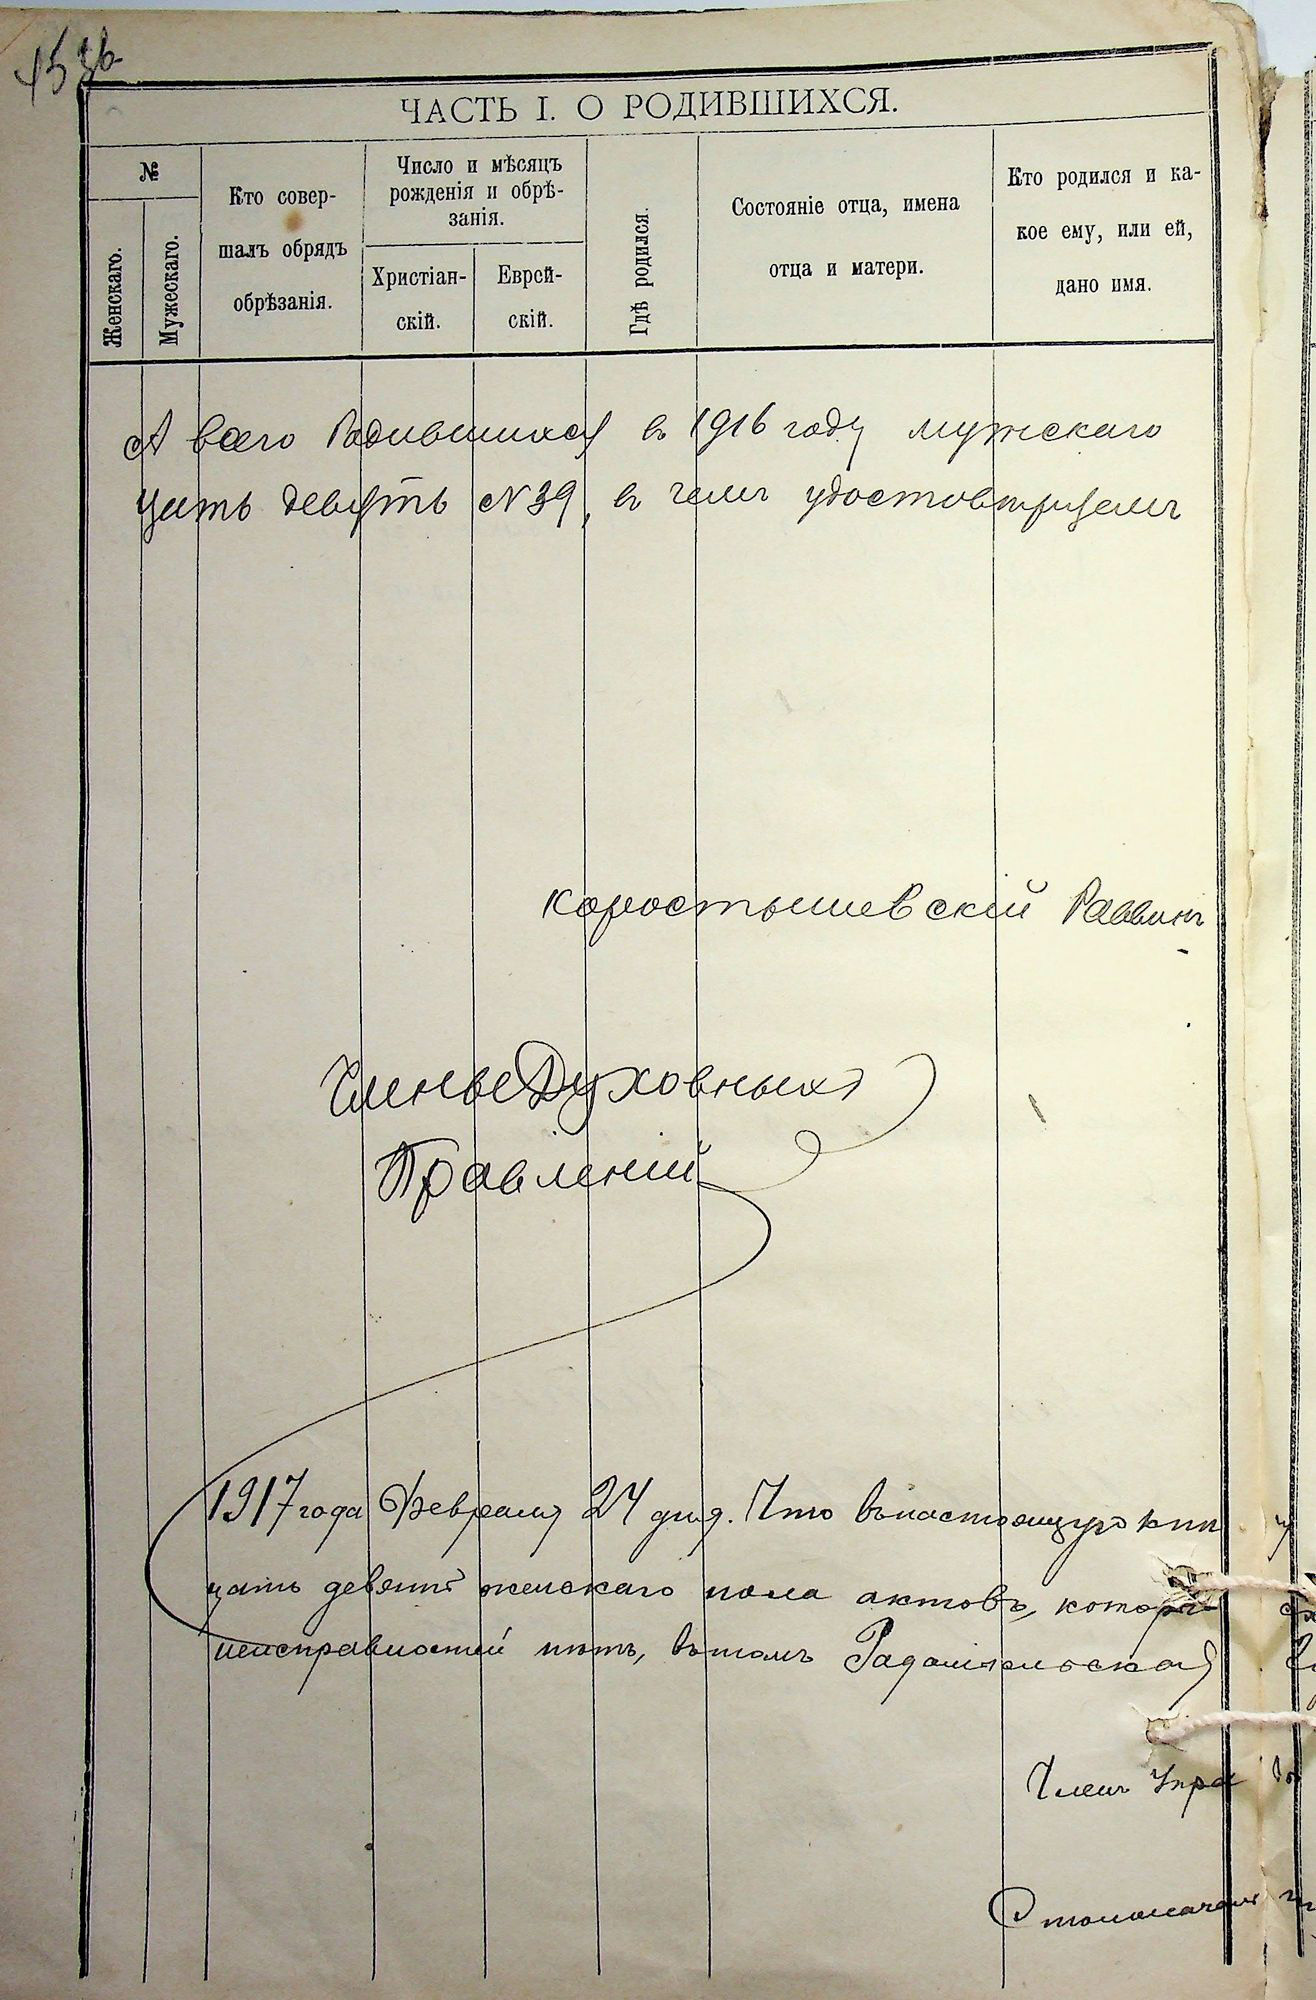 ЧАСТЬ I. О РОДИВШИХСЯ.
№
Женскаго.
Мужескаго.
Кто совер-
шалъ обрядъ
обрѣзанія.
Число и мѣсяцъ
рожденія и обрѣ-
занія.
Христіан-
скій.
Еврей-
скій.
Гдѣ родился.
Состояніе отца, имена
отца и матери.
Кто родился и ка-
кое ему, или ей,
дано имя.
А всего Родившихся въ 1916 году мужскаго
цать девять №39, въ чемъ удостовѣряемъ
Коростышевскій Раввинъ
Члены Духовныхъ
Правленій
1917 года Февраля 24 дня. Что въ настоящую кни
цать девять женскаго пола актовъ, котор
неисправностей нѣтъ, въ томъ Радомысльская
Членъ Упра
Столоначаль